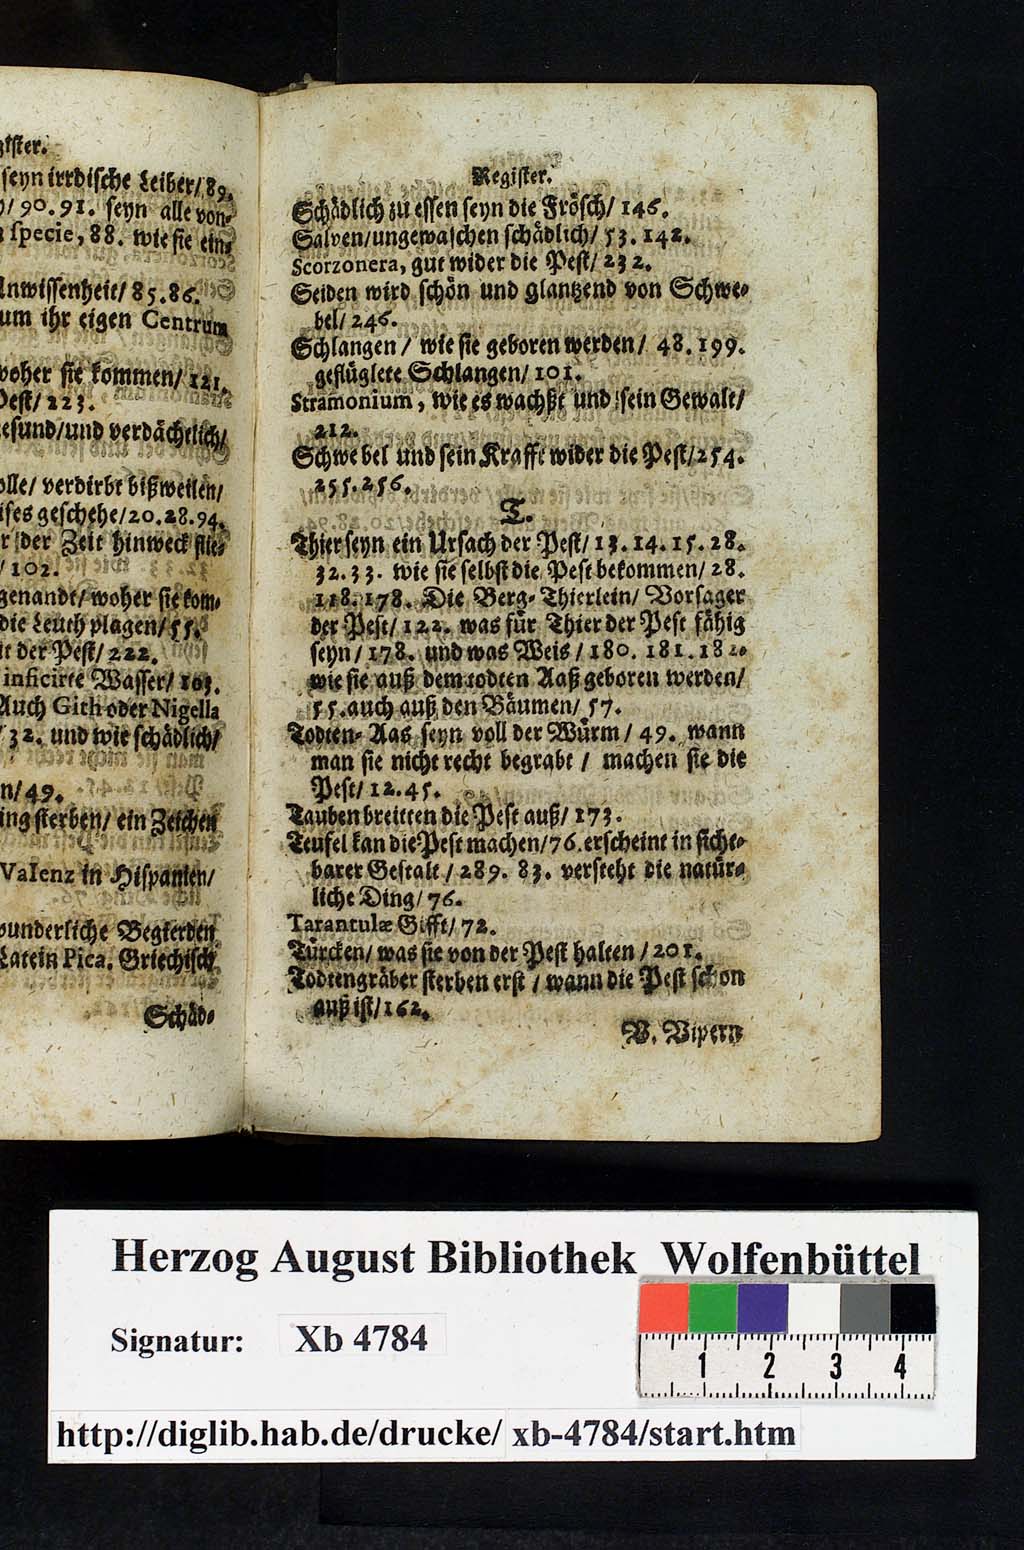 seyn irrdische Leiber/89.
/90.91. seyn alle von-
specie, 88. wie sie ein-
Unwissenheit/85.86.
um ihr eigen Centrum
woher sie kommen/121.
Pest/223.
gesund/und verdächtlich/
verdirbt bißweilen/
geschehe/20.28.94.
der Zeit hinweck flie-
/102.
genandt/woher sie kom-
die Leuth plagen/55.
der Pest/222.
inficirte Wasser/103.
Auch Gith oder Nigella
32. und wie schädlich/
/49.
sterben/ein Zeichen
Valenz in Hispanien/
wunderliche Begierden
Latein Pica. Griechisch
Schäd-
Register.
Schädlich zu essen seyn die Frösch/146.
Salven/ungewaschen schädlich/53.142.
Scorzonera, gut wider die Pest/232.
Seiden wird schön und glantzend von Schwe-
bel/246.
Schlangen/ wie sie geboren werden/ 48.199.
geflüglete Schlangen/101.
Stramonium, wie es wachßt und sein Gewalt/
212.
Schwebel und sein Krafft wider die Pest/254.
255.256.
T.
Thier seyn ein Ursach der Pest/13.14.15.28.
32.33. wie sie selbst die Pest bekommen/28.
118.178. Die Berg-Thierlein/ Vorsager
der Pest/122. was für Thier der Pest fähig
seyn/178. und was Weis/180.181.182.
wie sie auß dem todten Aaß geboren werden/
55. auch auß den Bäumen/57.
Todten-Aas seyn voll der Würm/49. wann
man sie nicht recht begrabt/ machen sie die
Pest/12.45.
Tauben breitten die Pest auß/173.
Teufel kan die Pest machen/76. erscheint in sicht-
barer Gestalt/289.83. versteht die natür-
liche Ding/76.
Tarantulæ Gifft/72.
Türcken/was sie von der Pest halten/201.
Todtengräber sterben erst/wann die Pest schon
auß ist/162.
V. Vipern
Herzog August Bibliothek Wolfenbüttel
Signatur: Xb 4784
1 2 3 4
http://diglib.hab.de/drucke/ xb-4784/start.htm